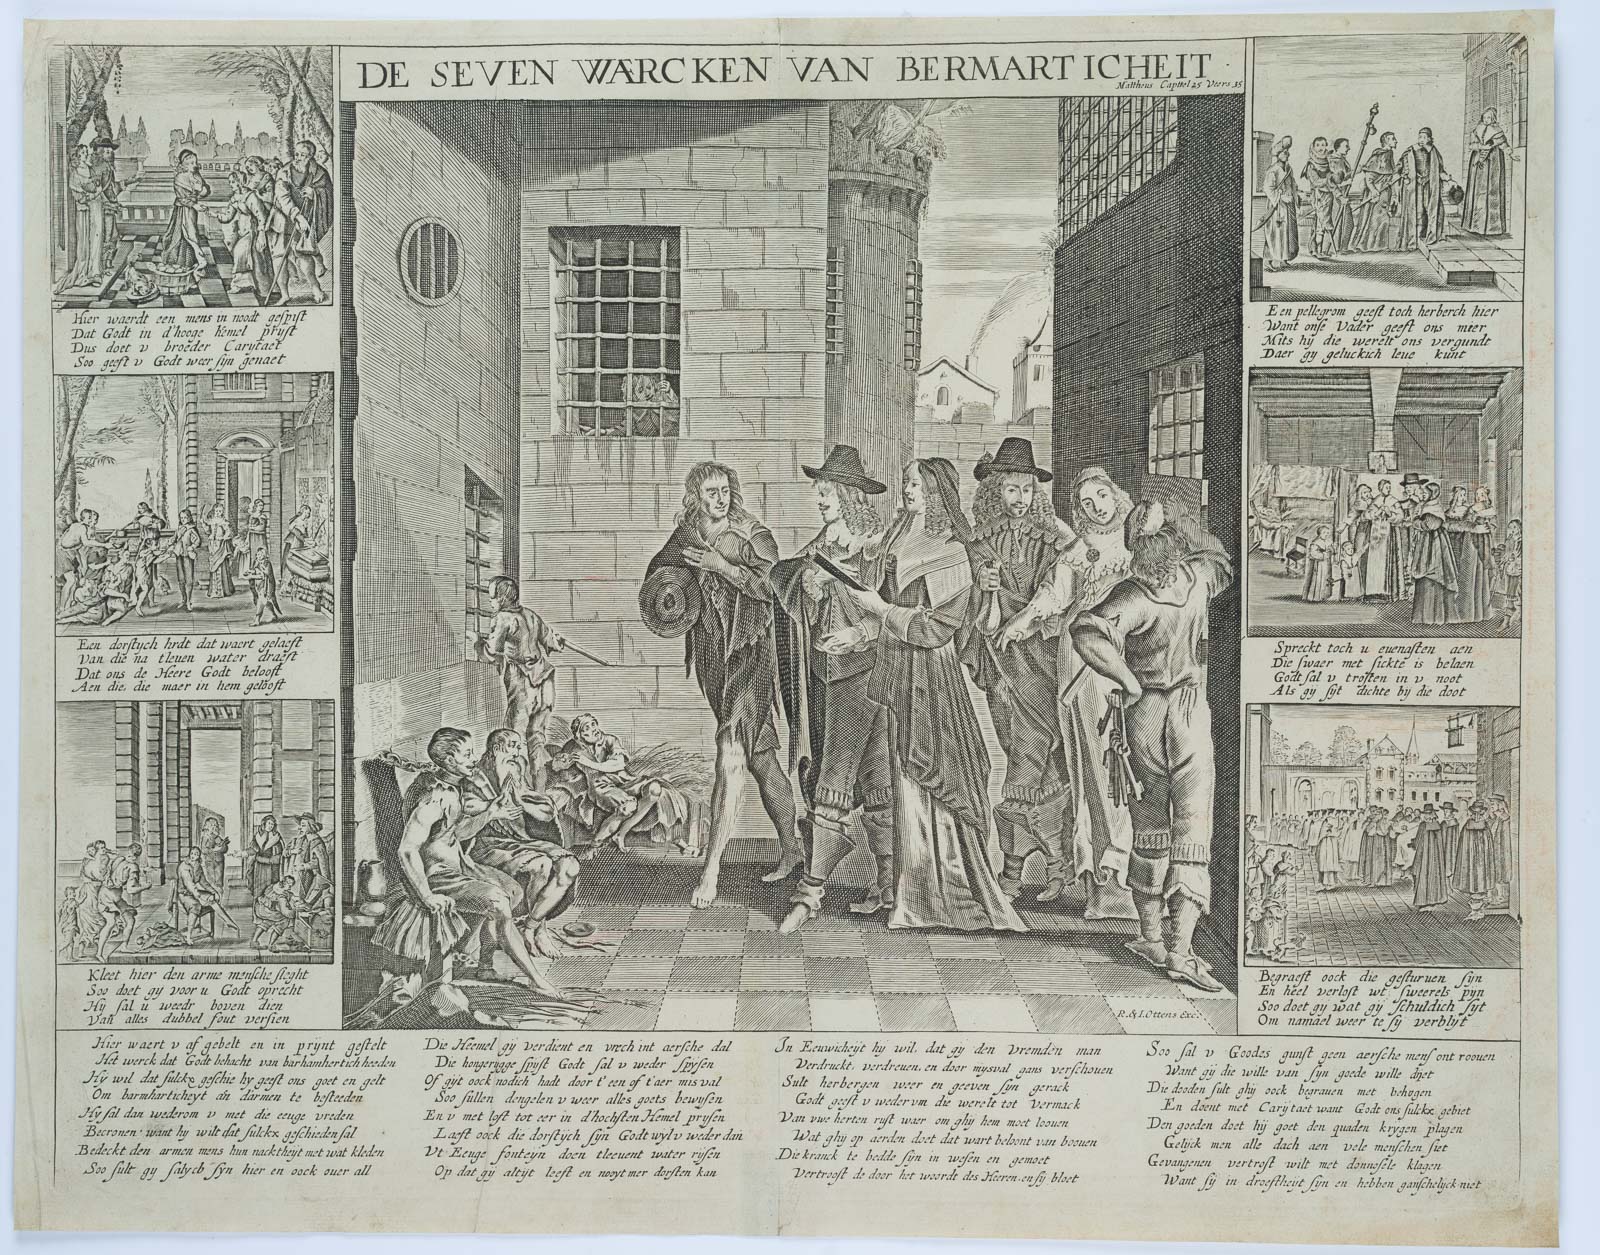 DE SEVEN WARCKEN VAN BERMARTICHEIT
Mattheus Capittel 25 Veers 35
Hier waerdt een mens in noodt gespist
Dat Godt in d'hooge hemel prijst
Dus doet v broeder Carijtaet
Soo geeft v Godt weer sijn genaet
Een dorstych hrdt dat waert gelaest
Van die na tleuen water draest
Dat ons de Heere Godt belooft
Aen die, die maer in hem gelooft
Kleet hier den arme mensche sleght
Soo doet gy voor u Godt oprecht
Hy sal u weedr boven dien
Van alles dubbel sout versien
Een pellegrom geeft toch herberch hier
Want onse Vader geeft ons mier
Mits hij die werelt ons vergundt
Daer gy geluckich leue kunt
Spreckt toch u euenasten aen
Die swaer met sickte is belaen
Godt sal v trosten in v noot
Als gij sijt dichte bij die doot
Begraeft oock die gesturuen sijn
En heel verlost wt sweerels pijn
Soo doet gy wat gy schuldich sijt
Om namael weer te sy verblijt
R. & I. Ottens Exc.
Hier waert v af gebelt en in prijnt gestelt
Het werck dat Godt behacht van barhamhertich heeden
Hy wil dat sulckx geschie hy geeft ons goet en gelt
Om barmharticheyt an darmen te besteeden
Hy sal dan wederom v met die eeuge vreden
Becronen want hy wilt dat sulckx geschieden sal
Bedeckt den armen mens hun nacktheyt met wat kleden
Soo sult gy salych syn hier en oock over all
Die Heemel gy verdient en vrech int aersche dal
Die hongerijgge spijst Godt sal v weder spijsen
Of gijt oock nodich hadt door t'een of t'aer mis val
Soo sullen dengelen v weer alles goets bewijsen
En v met lost tot eer in d'hochsten Hemel prijsen
Laeft oock die dorstijch sijn Godt wyl v weder dan
Vt Eeuge fonteijn doen tleeuent water rijsen
Op dat gij altijt leeft en nooyt mer dorsten kan
In Eeuwicheyt hy wil, dat gy den vremden man
Verdruckt, verdreuen, en door mysval gans verschouen
Sult herbergen weer en geeven sijn gerack
Godt geeft v weder vm die werelt tot vermack
Van vwe herten rijst waer om ghy hem moet loouen
Wat ghij op aerden doet dat wart beloont van boouen
Die kranck te bedde sijn in wesen en gemoet
Vertroost de door het woordt des Heeren en sij bloet
Soo sal v Goodes gunst geen aersche mens ont roouen
Want gij die wille van sijn goede wille doet
Die dooden sult ghij oock begrauen met behogen
En doent met Carijtaet want Godt ons sulckx gebiet
Den goeden doet hij goet den quaden krygen plagen
Gelijck men alle dach aen vele menschen siet
Gevangenen vertrost wilt met donnosele klagen
Want sij in droefheijt sijn en hebben ganschelijck niet